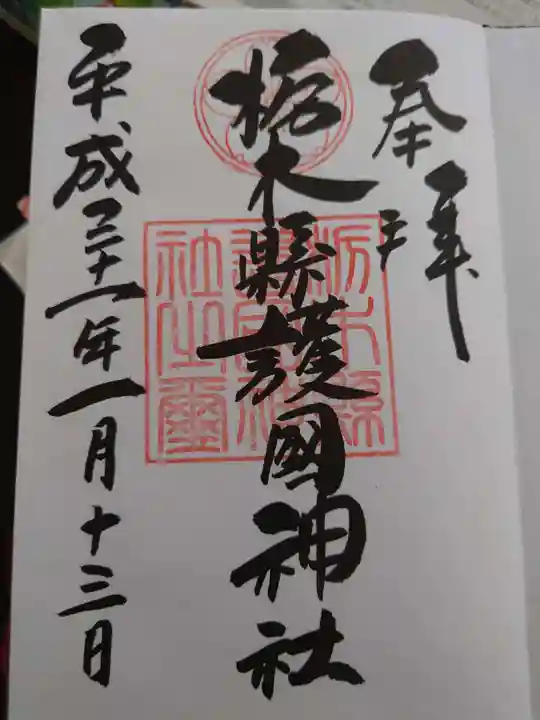 奉拝
栃木縣護國神社
栃木縣護國神社之璽
平成三十一年一月十三日